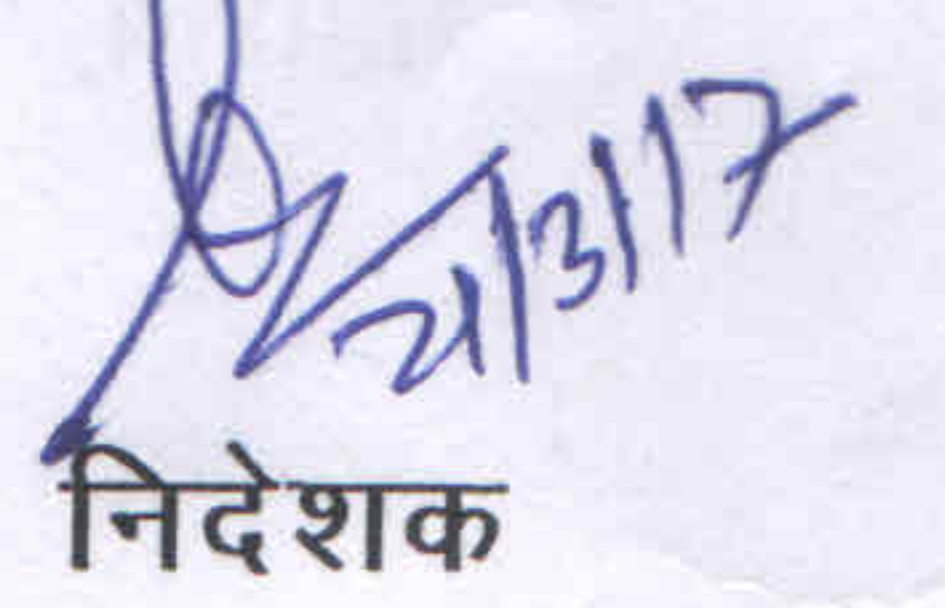 21/3/17
निदेशक